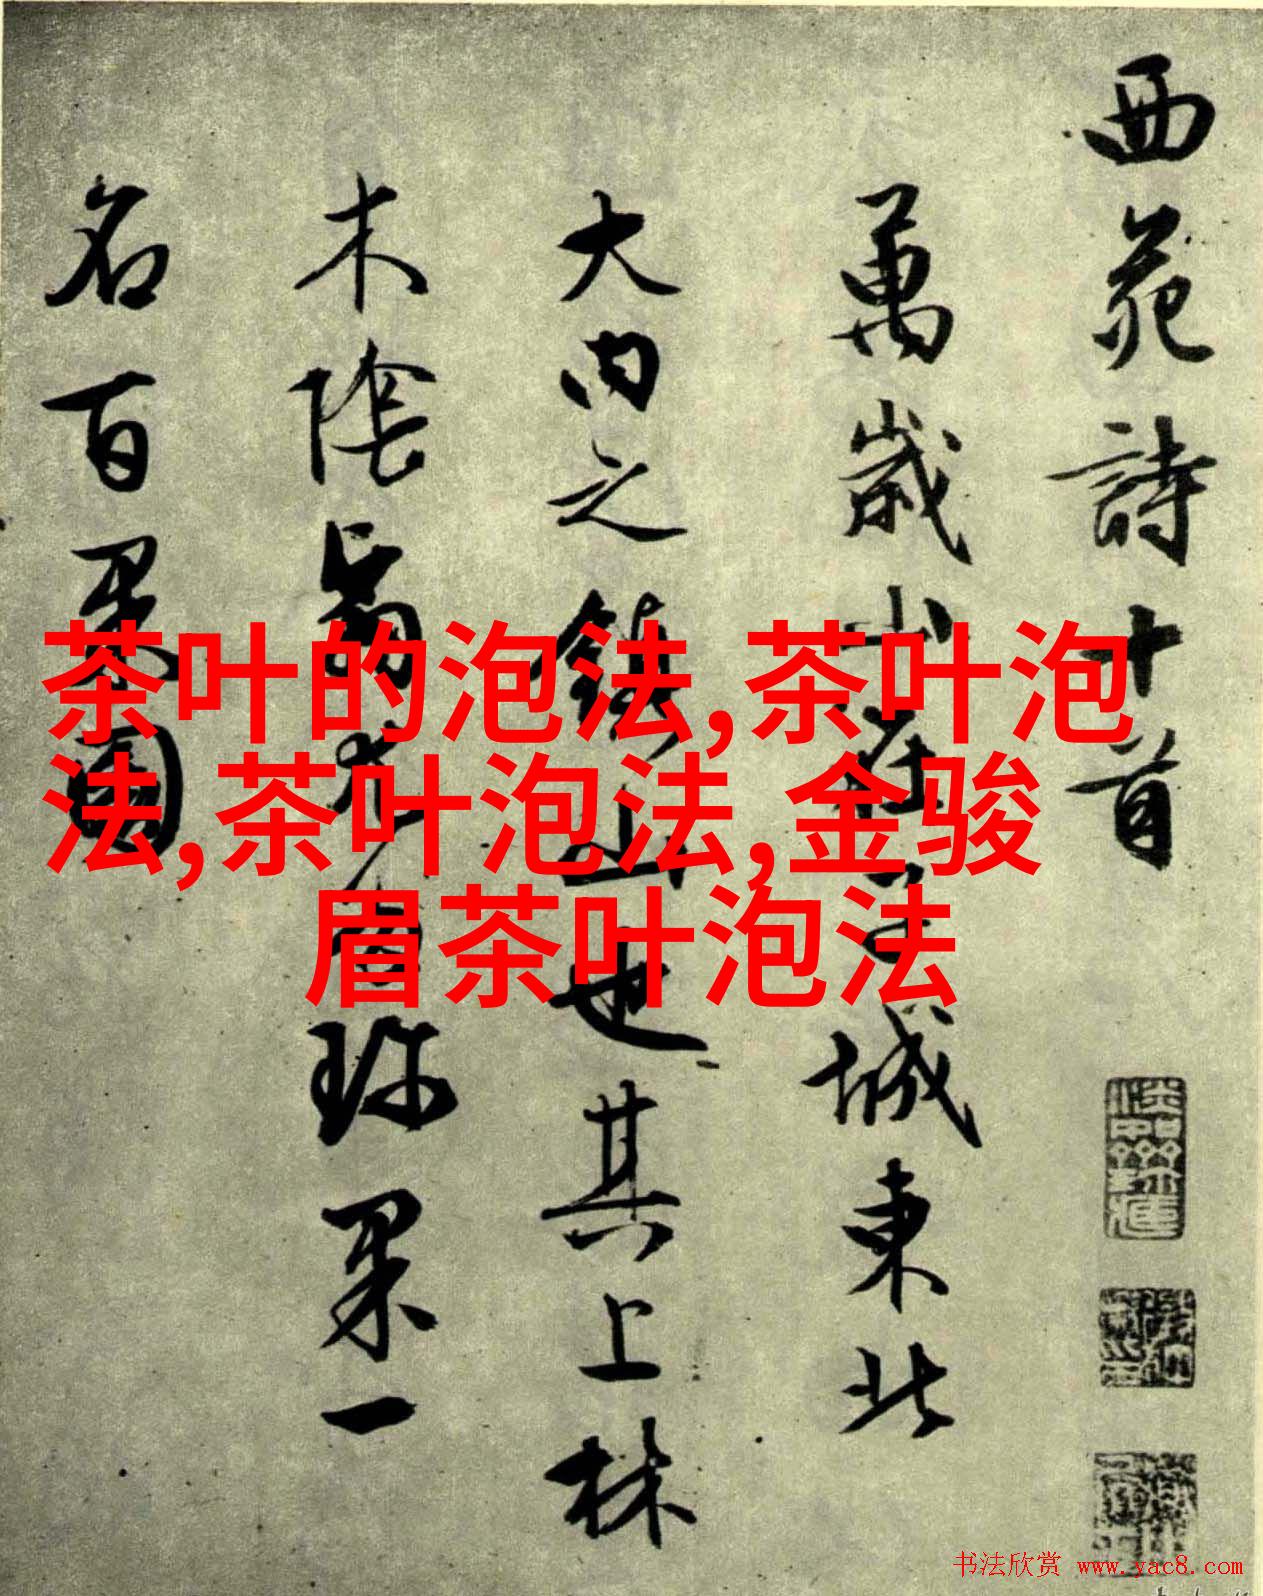 西苑詩十首
萬歲山在子城東北
大内之鎮山也其上林
木陰翳尤多珍果一
名百果園
茶叶的泡法,茶叶泡
法,茶叶泡法,金骏
眉茶叶泡法
书法欣赏 www.yac8.com